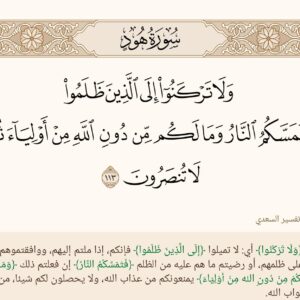 سُورَةُ هُودٍ
وَلَا تَرْكَنُوٓا۟ إِلَى ٱلَّذِينَ ظَلَمُوا۟
فَتَمَسَّكُمُ ٱلنَّارُ وَمَا لَكُم مِّن دُونِ ٱللَّهِ مِنْ أَوْلِيَآءَ
لَا تُنصَرُونَ ١١٣
تفسير السعدي
﴿وَلَا تَرْكَنُوا﴾ أي: لا تميلوا ﴿إِلَى الَّذِينَ ظَلَمُوا﴾ فإنكم، إذا ملتم إليهم، ووافقتموهم
على ظلمهم، أو رضيتم ما هم عليه من الظلم ﴿فَتَمَسَّكُمُ النَّارُ﴾ إن فعلتم ذلك ﴿وَمَا
لَكُمْ مِنْ دُونِ اللَّهِ مِنْ أَوْلِيَاءَ﴾ يمنعونكم من عذاب الله، ولا يحصلون لكم شيئا، من
ثواب الله.